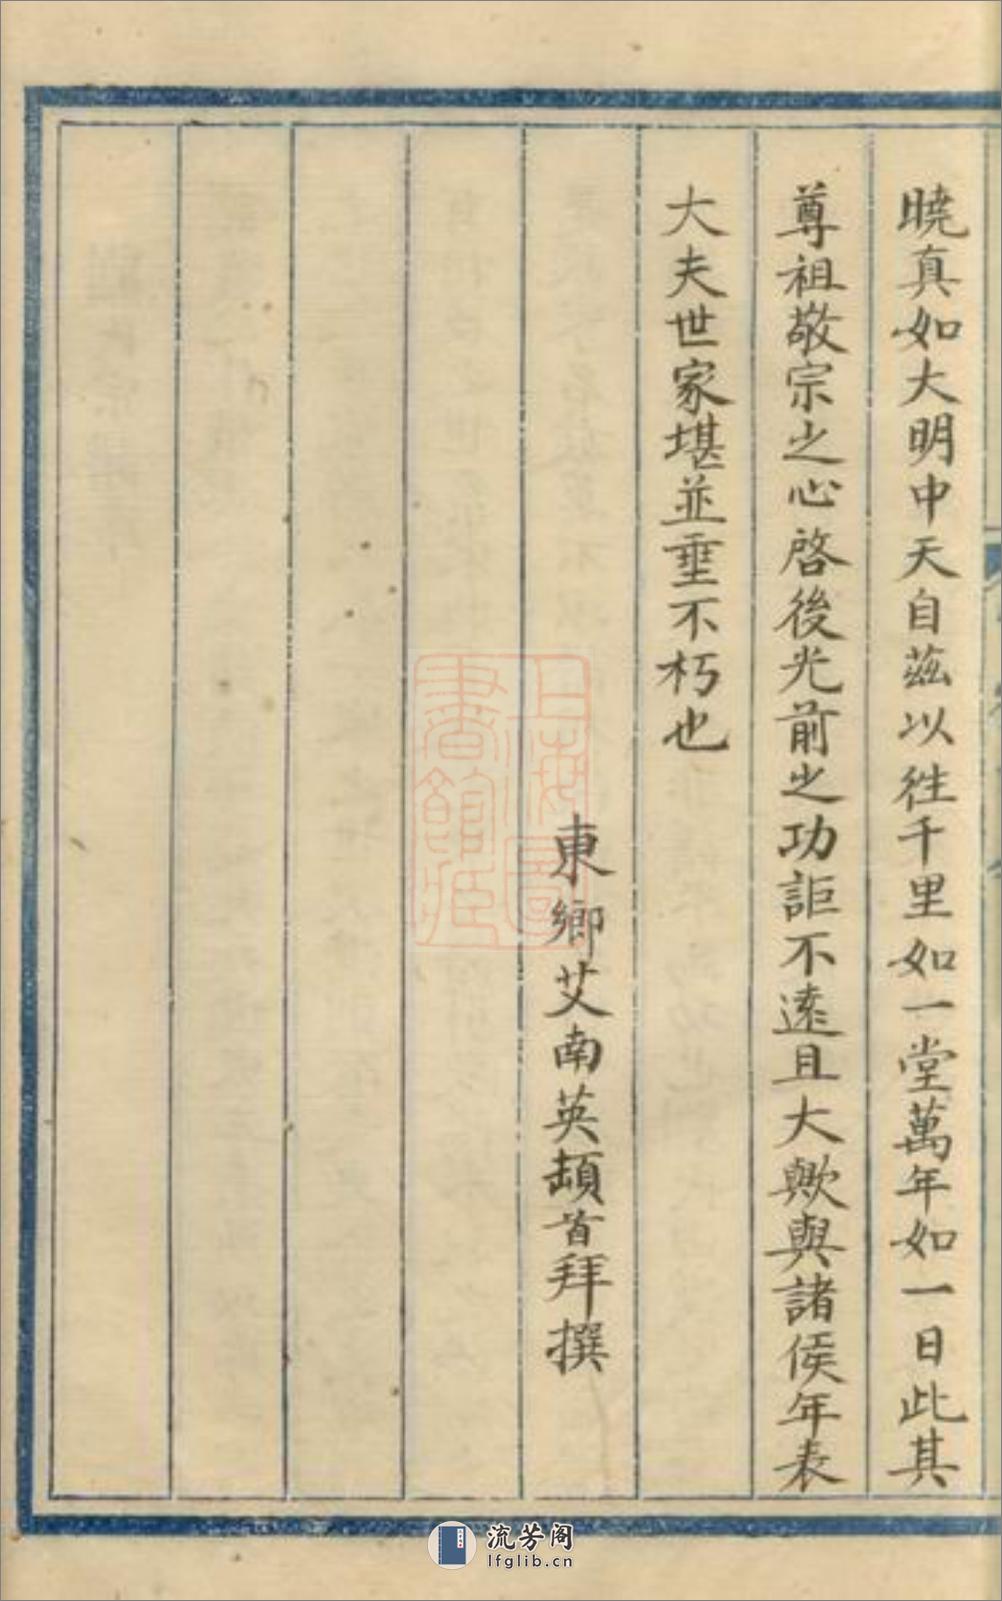 曉真如大明中天自茲以往千里如一堂萬年如一日此其
尊祖敬宗之心啓後光前之功詎不遠且大歟與諸侯年表
大夫世家堪並垂不朽也
東鄉艾南英頓首拜撰
上海圖
書館藏
流芳阁
lfglib.cn